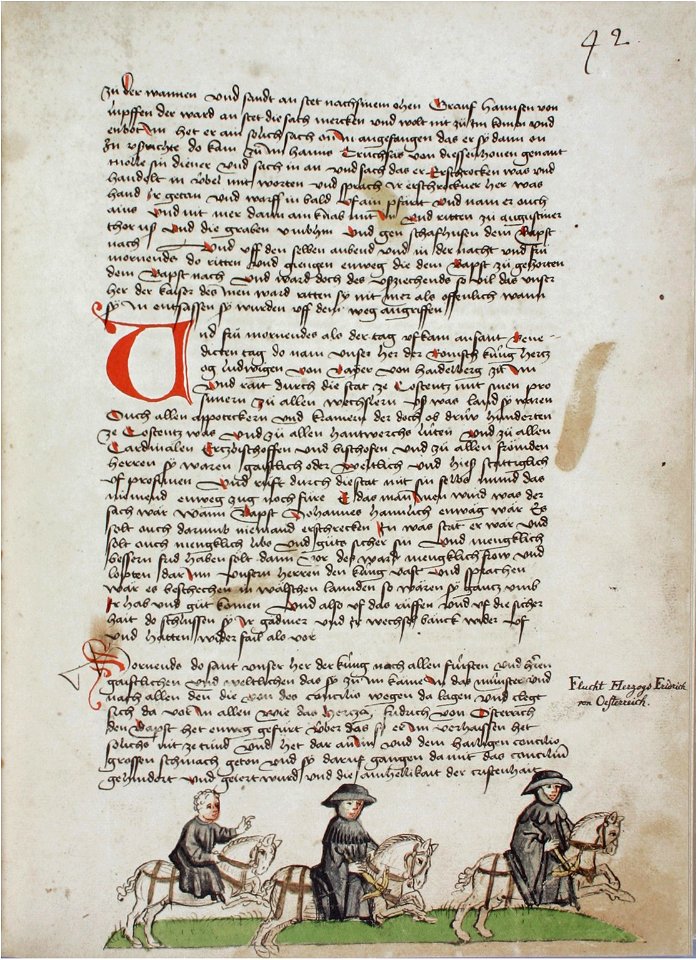 42
zu der wannen und sandt an stet nach sinem ohen Grauf Hannsen von
lupffen der ward an stet die sach mercken und wolt nit zu im komen und
enbot im het er ain solich sach on in angefangen das er sy dann on
in usrichte do kam zu im hanns Truchsäs von diessenhouen genant
molle sin diener und sach in an und sach das er erschrocken was und
handelt in übel mit worten und sprach ir erschrockner her was
hand ir getan und warff in bald uf ain pfärit und nam er ouch
ains und nit mer dann ain knab mit in und ritten zu augustiner
thor us und die graben umbhin und gen schafhusen dem Bapst
nach und uff den selben aubend und in der nacht und frü
mornendes do ritten und giengen enweg die dem Bapst zu gehorten
dem Bapst nach und ward doch des usziehends so vil das unser
her der kaiser des inen ward ritten sy nit mer als offenlich wann
sy in entsassen sy wurden uff dem weg angriffen
Und frü mornendes als der tag uf kam an sant Bene-
dicten tag do nam unser her der Römisch küng hertz
og ludwigen von Bayer von haidelberg zu im
und rait durch die stat ze Costentz mit sinen pro
sunern zu allen wechslern uss was land sy waren
Ouch allen appoteckern und kramern der doch ob drüw hunderten
ze Costentz was und zu allen hantwercks lüten und zu allen
Cardinalen Ertzbischoffen und bischofen und zu allen frömden
herren sy wären gaistlich oder weltlich und hiess stättiglich
uf prosunen und ruft durch die stat mit sin selbs mund das
niemend enweg zug noch füre E das man innen wurd was der
sach wär wann Bapst Johannes haimlich enwäg wär Es
solt ouch darumb niemand erschrecken in was stat er wär und
solt ouch mengklich libs und guts sicher sin und mengklich
bessern frid haben solt dann vor des ward mengklich frow und
lopten darum unsern herren den küng vast und sprachen
wär es beschechen in wälschen lannden so wären sy gantz umb
ir hab und güt komen und also uf das rüffen und uf die sicher
hait do schlussen sy ir gädmer und ir wechsel bänck wider uf
und hatten wider fail als vor
Mornendes do sant unser her der küng nach allen fürsten und herren
gaistlichen und weltlichen das sy zu im kämen in das münster und
nach allen den die von des concilio wegen da lagen und clegt
sich da vor in allen wie das hertzog fridrich von Österrich
den Bapst het enweg gefürt über das so er im verhaissen het
solichs nit ze tünd und het dar an im und dem hailigen concilio
grossen schmach geton und sy daruf gangen da mit das concilium
gehindert und geiert wurd und die ainhellikait der cristenhait
Flucht Herzogs Fridrich
von Oesterreich.